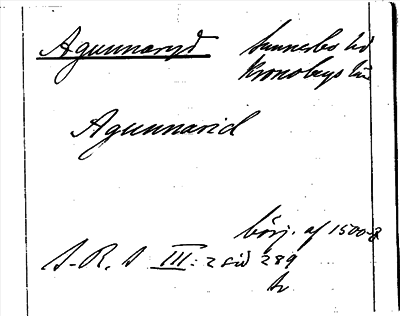 Agunnaryd Sunnerbo hd
Kronobergs län
Agunnarid
börj. af 1500-t
S.R.S III:2 sid 289